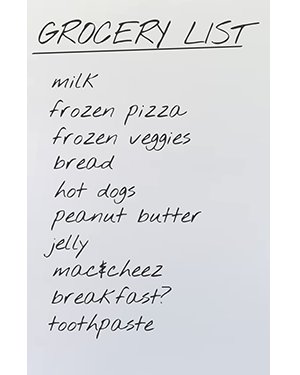 GROCERY LIST
milk
frozen pizza
frozen veggies
bread
hot dogs
peanut butter
jelly
mac&cheez
breakfast?
toothpaste